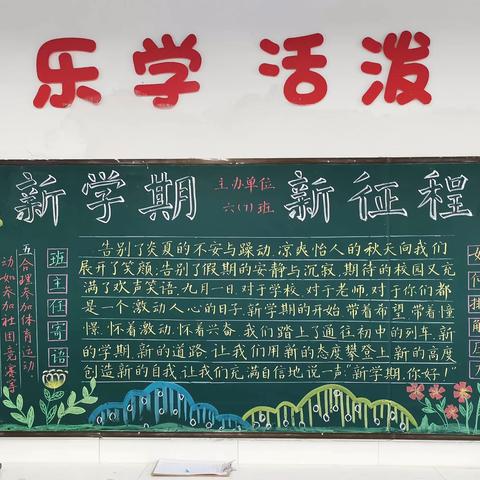 乐学 活泼
新学期 新征程
主办单位
六(1)班
班主任寄语
告别了炎夏的不安与躁动,凉爽怡人的秋天向我们
展开了笑颜;告别了假期的安静与沉寂,期待的校园又充
满了欢声笑语;九月一日,对于学校,对于老师,对于你们都
是一个激动人心的日子,新学期的开始,带着希望,带着憧
憬,怀着激动,怀着兴奋,我们踏上了通往初中的列车,新
的学期,新的道路,让我们用新的态度攀登上新的高度,
创造新的自我,让我们充满自信地说一声:“新学期,你好!”
五、合理参加体育运动。
动如参加社团竞赛等
如何排解压力